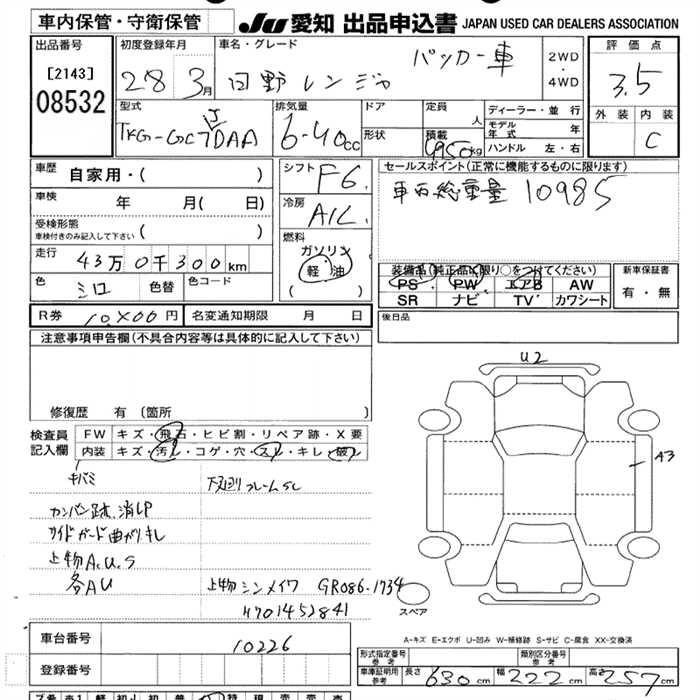 車内保管・守衛保管
JU 愛知 出品申込書 JAPAN USED CAR DEALERS ASSOCIATION
出品番号
[2143]
08532
初度登録年月
28 3月
車名・グレード
日野レンジャ パッカー車
2WD
・
4WD
評価点
3.5
外装 内装
C
型式
TKG-GC7JDAA
排気量
6-40cc
ドア
形状
定員
人
積載
4950kg
ディーラー・並行
モデル年式 年
ハンドル 左・右
車歴 自家用・( )
車検 年 月( 日)
受検形態
車検付きのみ記入して下さい ( )
走行 43万0千300km
色 シロ 色替 色コード
シフト F6
冷房 A/C
燃料
ガソリン
軽油
( )
セールスポイント(正常に機能するものに限ります)
車両総重量 10985
装備品(純正品に限り○をつけてください)
PS PW エアB AW
SR ナビ TV カワシート
新車保証書
有・無
R券 円
名変通知期限 月 日
後日品
注意事項申告欄(不具合内容等は具体的に記入して下さい)
修復歴 有(箇所
検査員記入欄
FW キズ・飛石・ヒビ割・リペア跡・X要
内装 キズ・汚レ・コゲ・穴・スレ・キレ・破レ
キバミ
下回り フレームSC
カンバン跡、消しP
サイドガード曲がりキレ
上物A.U.S
各AU
上物シンメイワ GR086-1734
U2
A3
スペア
A-キズ E-エクボ U-凹み W-補修跡 S-サビ C-腐食 XX-交換済
車台番号 10226
登録番号
型式指定番号
参考
類別区分番号
参考
車庫証明用
参考
長さ 630cm 幅 222cm 高さ 257cm